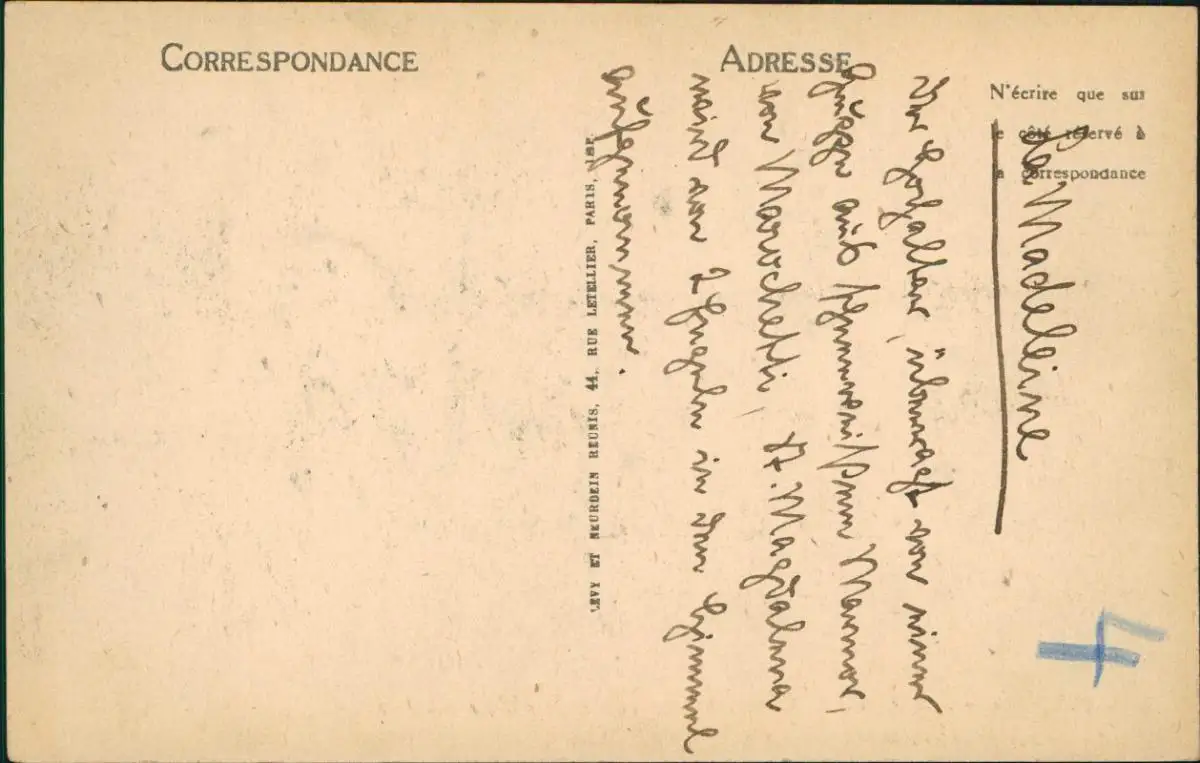 CORRESPONDANCE
ADRESSE
N'écrire que sur
le côté réservé à
la correspondance
LEVY ET NEURDEIN REUNIS, 44, RUE LETELLIER, PARIS, IMP.
La Madeleine
Der Hochaltar, überragt von einer
Gruppe aus schneeweissem Marmor,
von Marochetti, St. Magdalena
wird von 2 Engeln in den Himmel
aufgenommen.
4